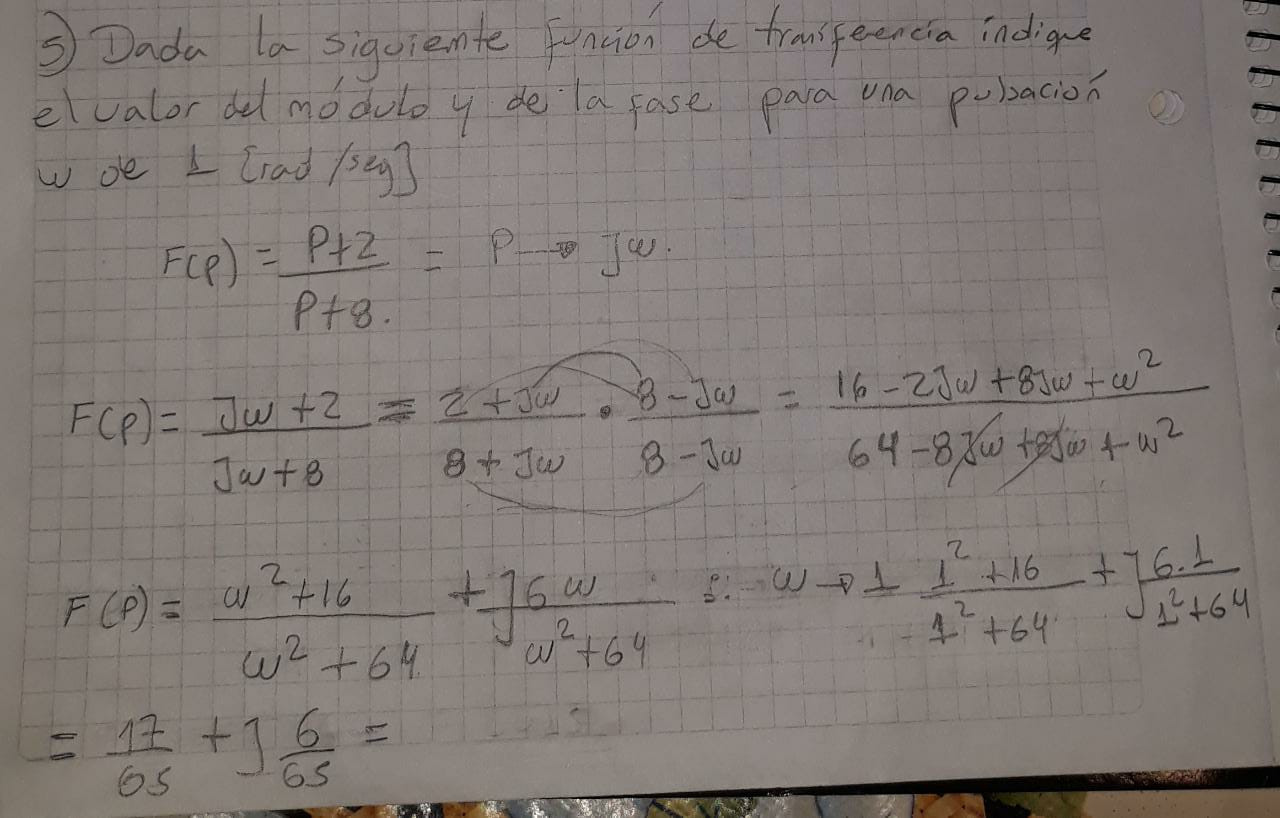 5) Dada la siguiente función de transferencia indique
el valor del módulo y de la fase para una pulsación
w de 1 [rad/seg]
F(p) = P+2 / P+8. = P → Jw.
F(p) = Jw+2 / Jw+8 = 2+Jw / 8+Jw · 8-Jw / 8-Jw = 16-2Jw+8Jw+w² / 64-8Jw+8Jw+w²
F(p) = w²+16 / w²+64 + J 6w / w²+64 si w → 1 1²+16 / 1²+64 + J 6.1 / 1²+64
= 17/65 + J 6/65 =